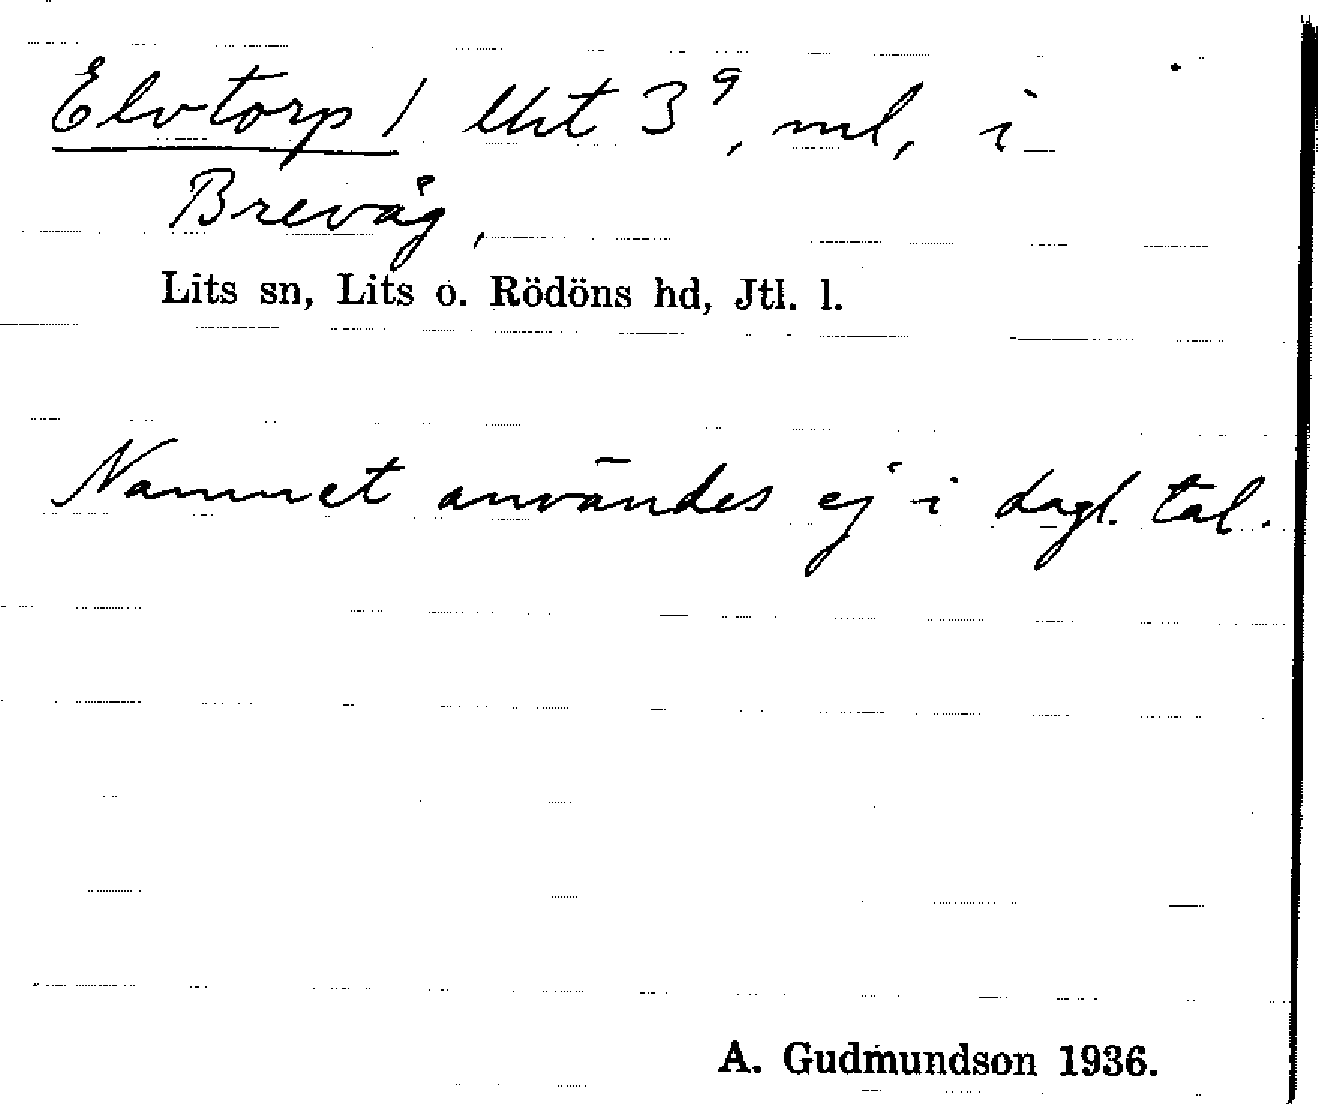 Elvtorp / lht 3⁹, ml, i
Brevåg,
Lits sn, Lits o. Rödöns hd, Jtl. l.
Namnet användes ej i dagl. tal.
A. Gudmundson 1936.